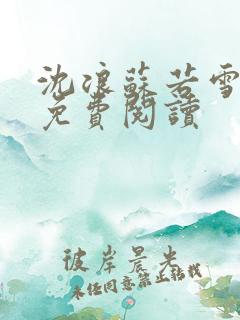 沈浪蘇若雪
免費閱讀
彼岸晨光
未经同意禁止转载